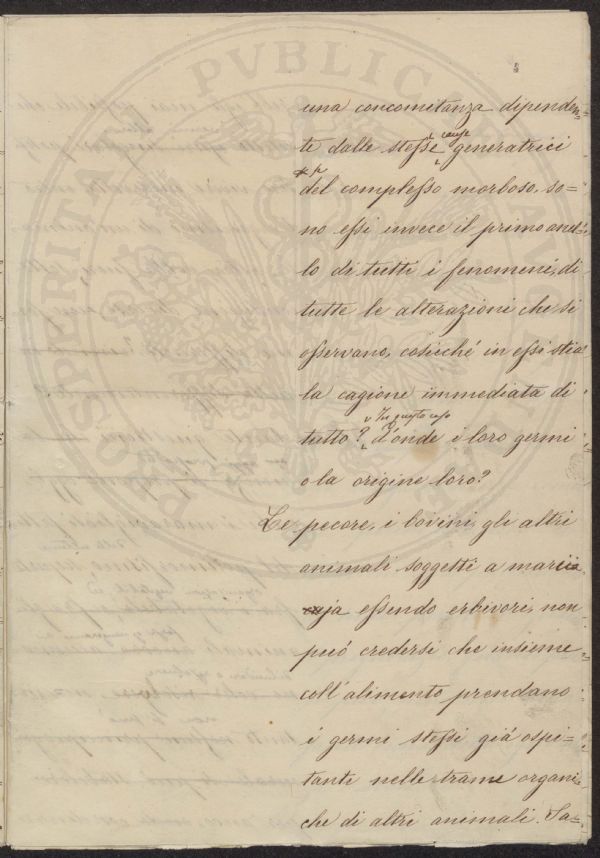 PROSPERITATI PUBLICAE
una concomitanza dipenden=
te dalle stesse cause generatrici
del complesso morboso, so=
no essi invece il primo anel=
lo di tutti i fenomeni, di
tutte le alterazioni che si
osservano, cosicché in essi stia
la cagione immediata di
tutto? In questo caso d'onde i loro germi
o la origine loro?
Le pecore, i bovini, gli altri
animali soggetti a marcia
ja essendo erbivori, non
può credersi che insieme
coll'alimento prendano
i germi stessi già ospi=
tanti nelle trame organi=
che di altri animali. Sa=